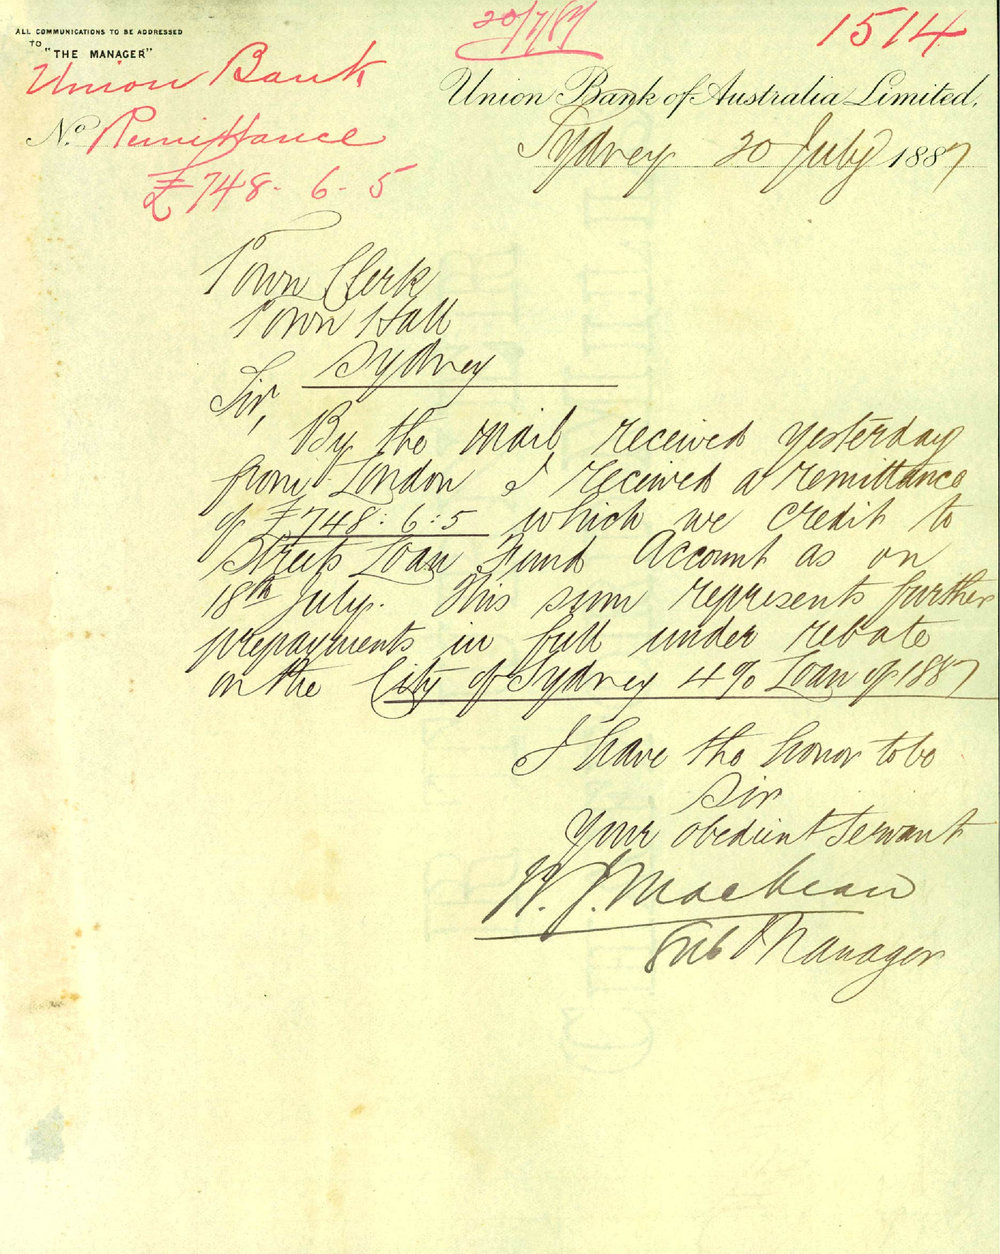 ALL COMMUNICATIONS TO BE ADDRESSED
TO "THE MANAGER"
20/7/87
1514
Union Bank
Remittance
£748. 6. 5
Union Bank of Australia Limited,
No.
Sydney 20 July 1887
Town Clerk
Town Hall
Sydney
Sir,
By the mail received yesterday
from London I received a remittance
of £748:6:5 which we credit to
Streets Loan Fund Account as on
18th July. This sum represents further
prepayments in full under rebate
on the City of Sydney 4% Loan of 1887
I have the honor to be
Sir
Your obedient Servant
W. J. Macbean
Sub Manager